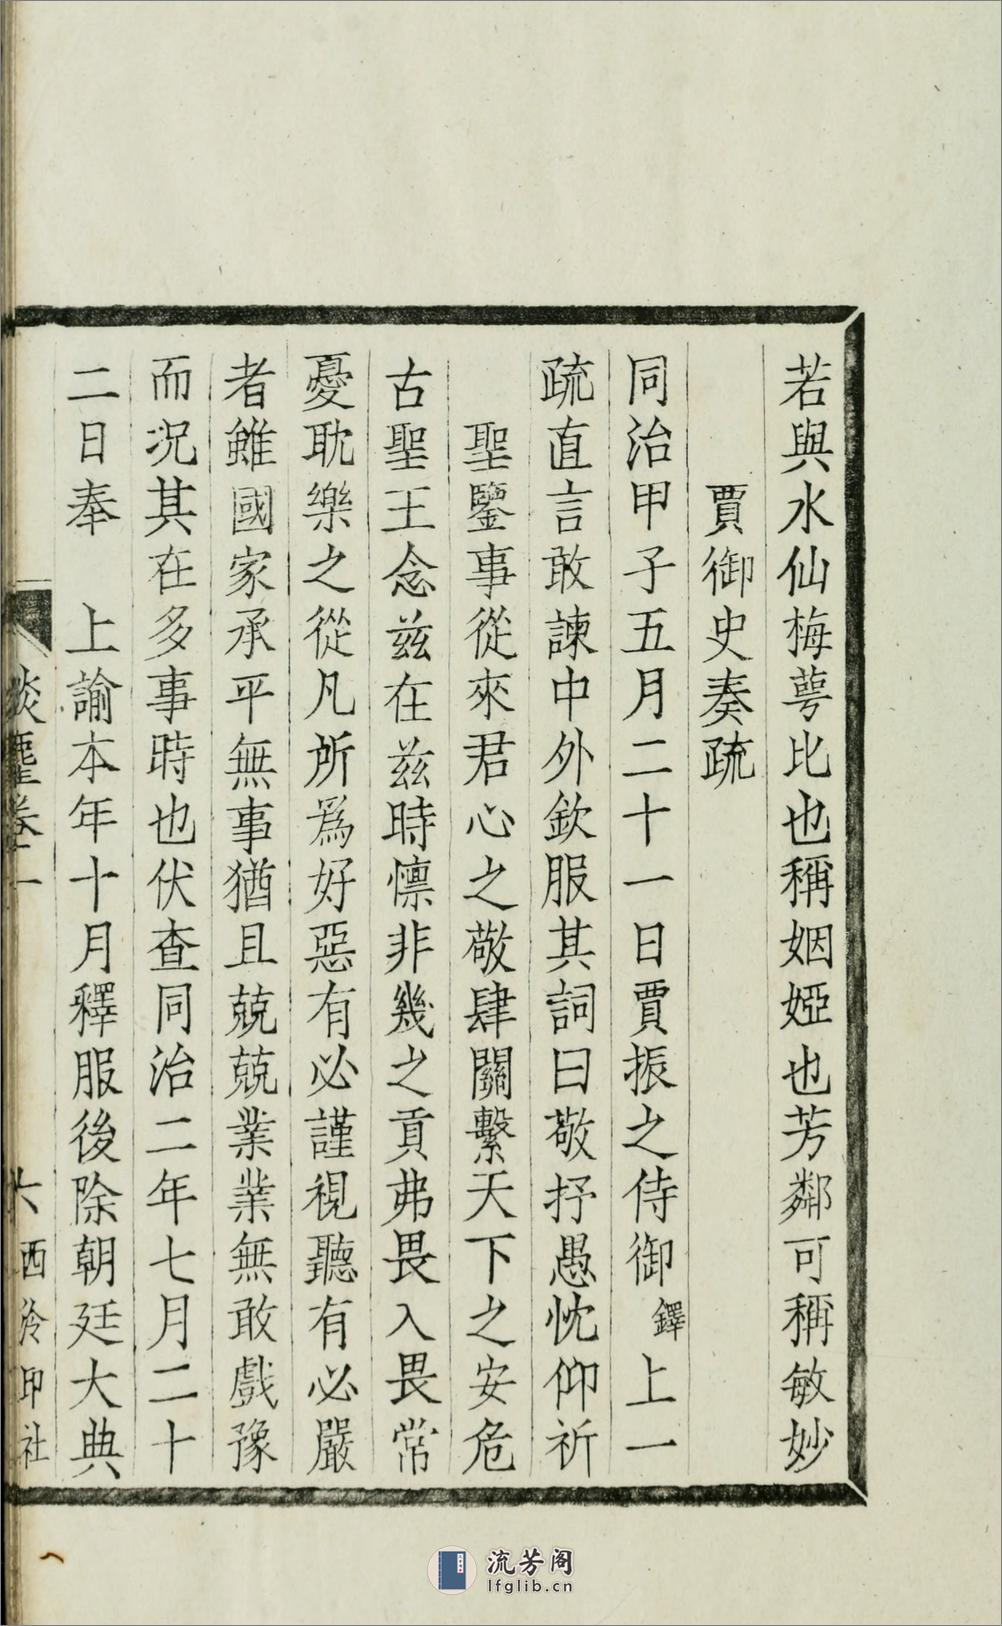 若與水仙梅萼比也稱姻婭也芳鄰可稱敏妙
賈御史奏疏
同治甲子五月二十一日賈振之侍御鐸上一
疏直言敢諫中外欽服其詞曰敬抒愚忱仰祈
聖鑒事從來君心之敬肆關繫天下之安危
古聖王念兹在兹時懍非幾之貢弗畏入畏常
憂耽樂之從凡所爲好惡有必謹視聽有必嚴
者雖國家承平無事猶且兢兢業業無敢戲豫
而況其在多事時也伏查同治二年七月二十
二日奉 上諭本年十月釋服後除朝廷大典
談麈卷一
六 西泠印社
流芳阁
lfglib.cn